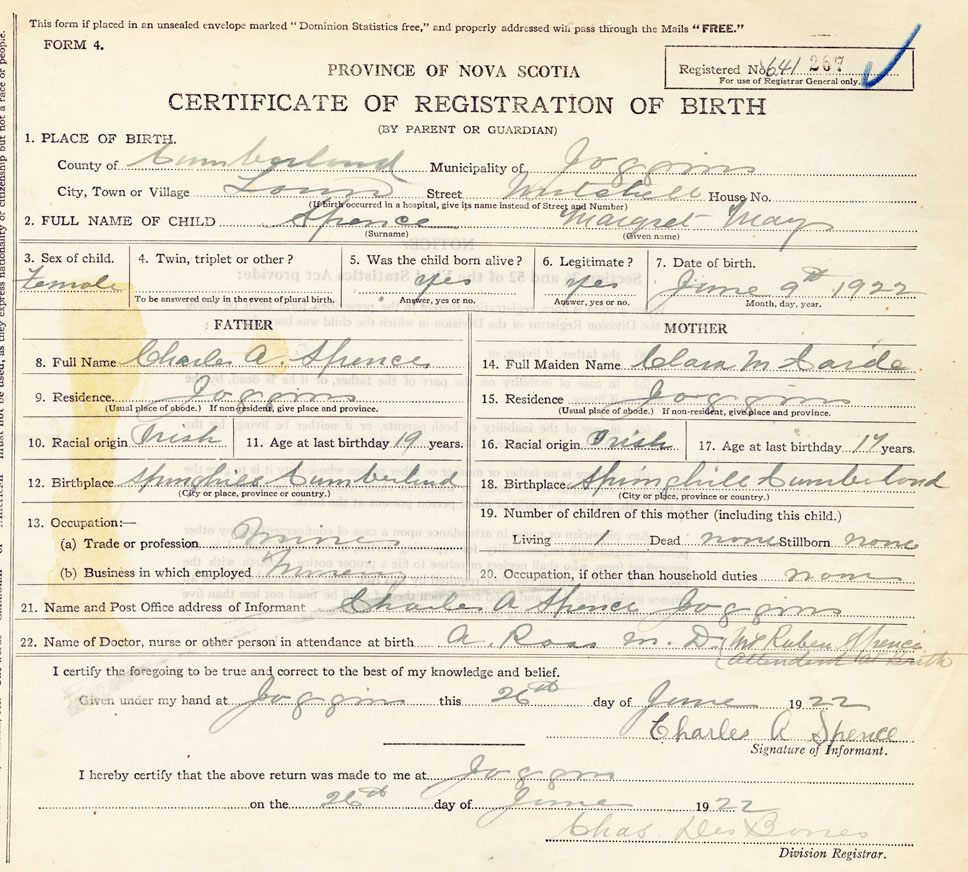 This form if placed in an unsealed envelope marked "Dominion Statistics free," and properly addressed will pass through the Mails "FREE."
FORM 4.
Registered No. 641 267
For use of Registrar General only.
PROVINCE OF NOVA SCOTIA
CERTIFICATE OF REGISTRATION OF BIRTH
(BY PARENT OR GUARDIAN)
1. PLACE OF BIRTH.
County of Cumberland Municipality of Joggins
City, Town or Village Town Street Mitchell House No.
(If birth occurred in a hospital, give its name instead of Street and Number)
2. FULL NAME OF CHILD Spence Margret May
(Surname) (Given name)
3. Sex of child. 4. Twin, triplet or other? 5. Was the child born alive? 6. Legitimate? 7. Date of birth.
Female yes yes June 9th 1922
To be answered only in the event of plural birth. Answer, yes or no. Answer, yes or no. Month, day, year.
FATHER MOTHER
8. Full Name Charles A. Spence 14. Full Maiden Name Clara
9. Residence Joggins 15. Residence Joggins
(Usual place of abode.) If non-resident, give place and province. (Usual place of abode.) If non-resident, give place and province.
10. Racial origin Irish 11. Age at last birthday 19 years. 16. Racial origin Irish 17. Age at last birthday 17 years.
12. Birthplace Springhill Cumberland 18. Birthplace Springhill Cumberland
(City or place, province or country.) (City or place, province or country.)
13. Occupation:— 19. Number of children of this mother (including this child.)
(a) Trade or profession Miner Living 1 Dead none Stillborn none
(b) Business in which employed 20. Occupation, if other than household duties none
21. Name and Post Office address of Informant Charles A Spence Joggins
22. Name of Doctor, nurse or other person in attendance at birth A. Ross M. D. Ruben Spence
attendent at Birth
I certify the foregoing to be true and correct to the best of my knowledge and belief.
Given under my hand at Joggins this 26th day of June 1922
Charles A Spence
Signature of Informant.
I hereby certify that the above return was made to me at Joggins
on the 26th day of June 1922
Chas.
Division Registrar.